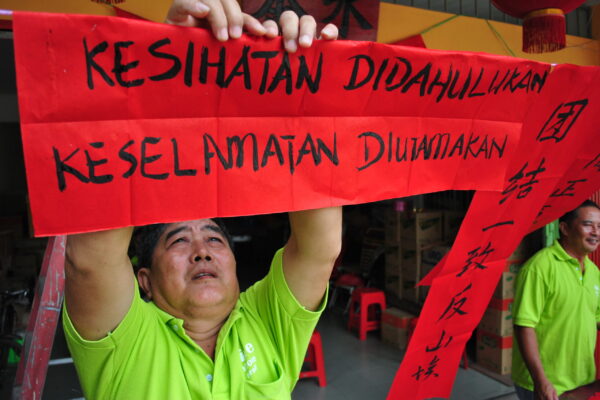 KESIHATAN DIDAHULUKAN
KESELAMATAN DIUTAMAKAN
团结一致反山埃
正